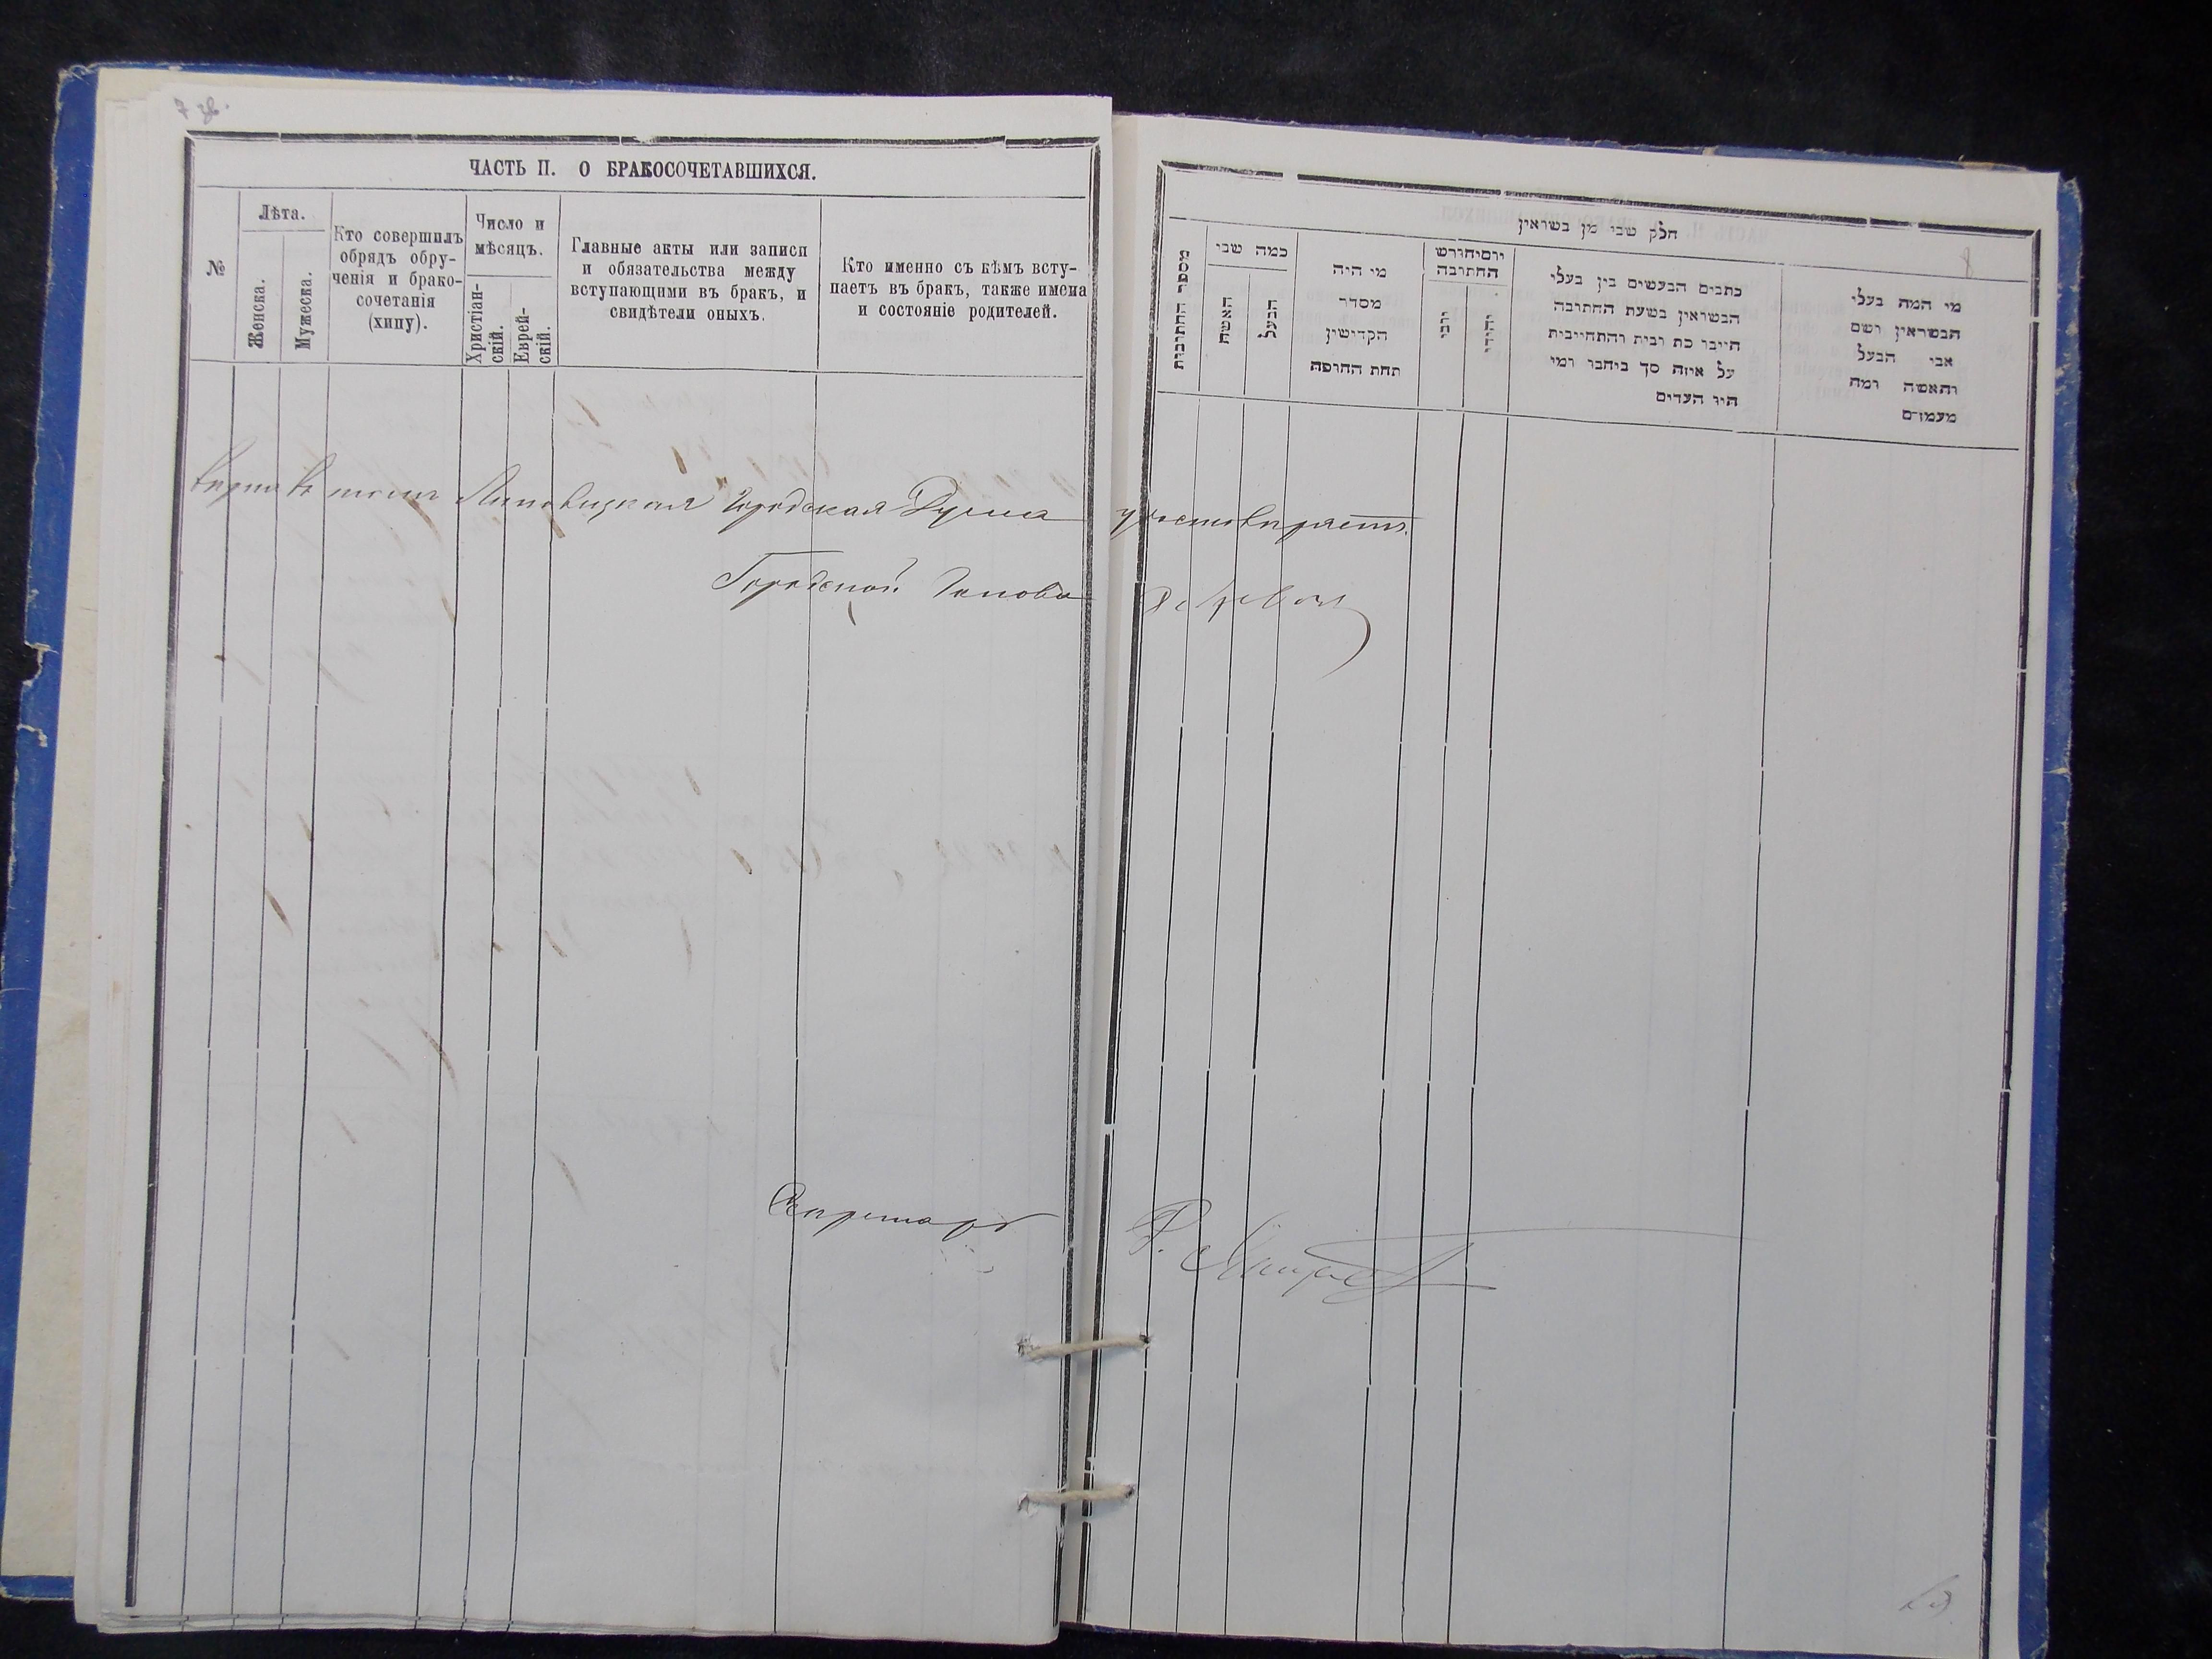 7 зв.
ЧАСТЬ П. О БРАКОСОЧЕТАВШИХСЯ.
№
Лѣта.
Женска.
Мужеска.
Кто совершилъ
обрядъ обру-
ченія и брако-
сочетанія
(хипу).
Число и
мѣсяцъ.
Христіан-
скій.
Еврей-
скій.
Главные акты или записи
и обязательства между
вступающими въ бракъ, и
свидѣтели оныхъ.
Кто именно съ кѣмъ всту-
паетъ въ бракъ, также имена
и состояніе родителей.
Городская Дума удостовѣряетъ.
Городской Голова
Секретарь
8
חלק שבי מן בשואין
מספר החתובות
כמה שבי
האשה
הבעל
מי היה
מסדר
הקדישין
תחת החופה
יום וחודש
החתובה
יהודי
כתבים הבעשים בין בעלי
הבשואין בשעת החתובה
חייבו כת ובית והתחייבות
על איזה סך ביהבו ומי
היו העדים
מי המה בעלי
הבשואין ושם
אבי הבעל
והאשה ומה
מעמדם